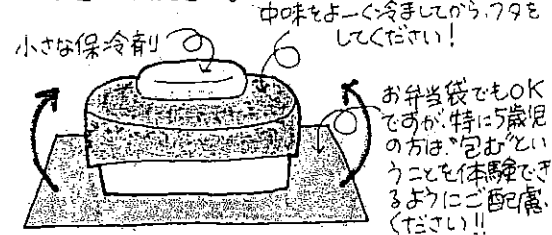 中味をよーく冷ましてから、フタを
してください!
小さな保冷剤
お弁当袋でもOK
ですが、特に5歳児
の方は、"包む"とい
うことを体験でき
るようにご配慮、
ください!!